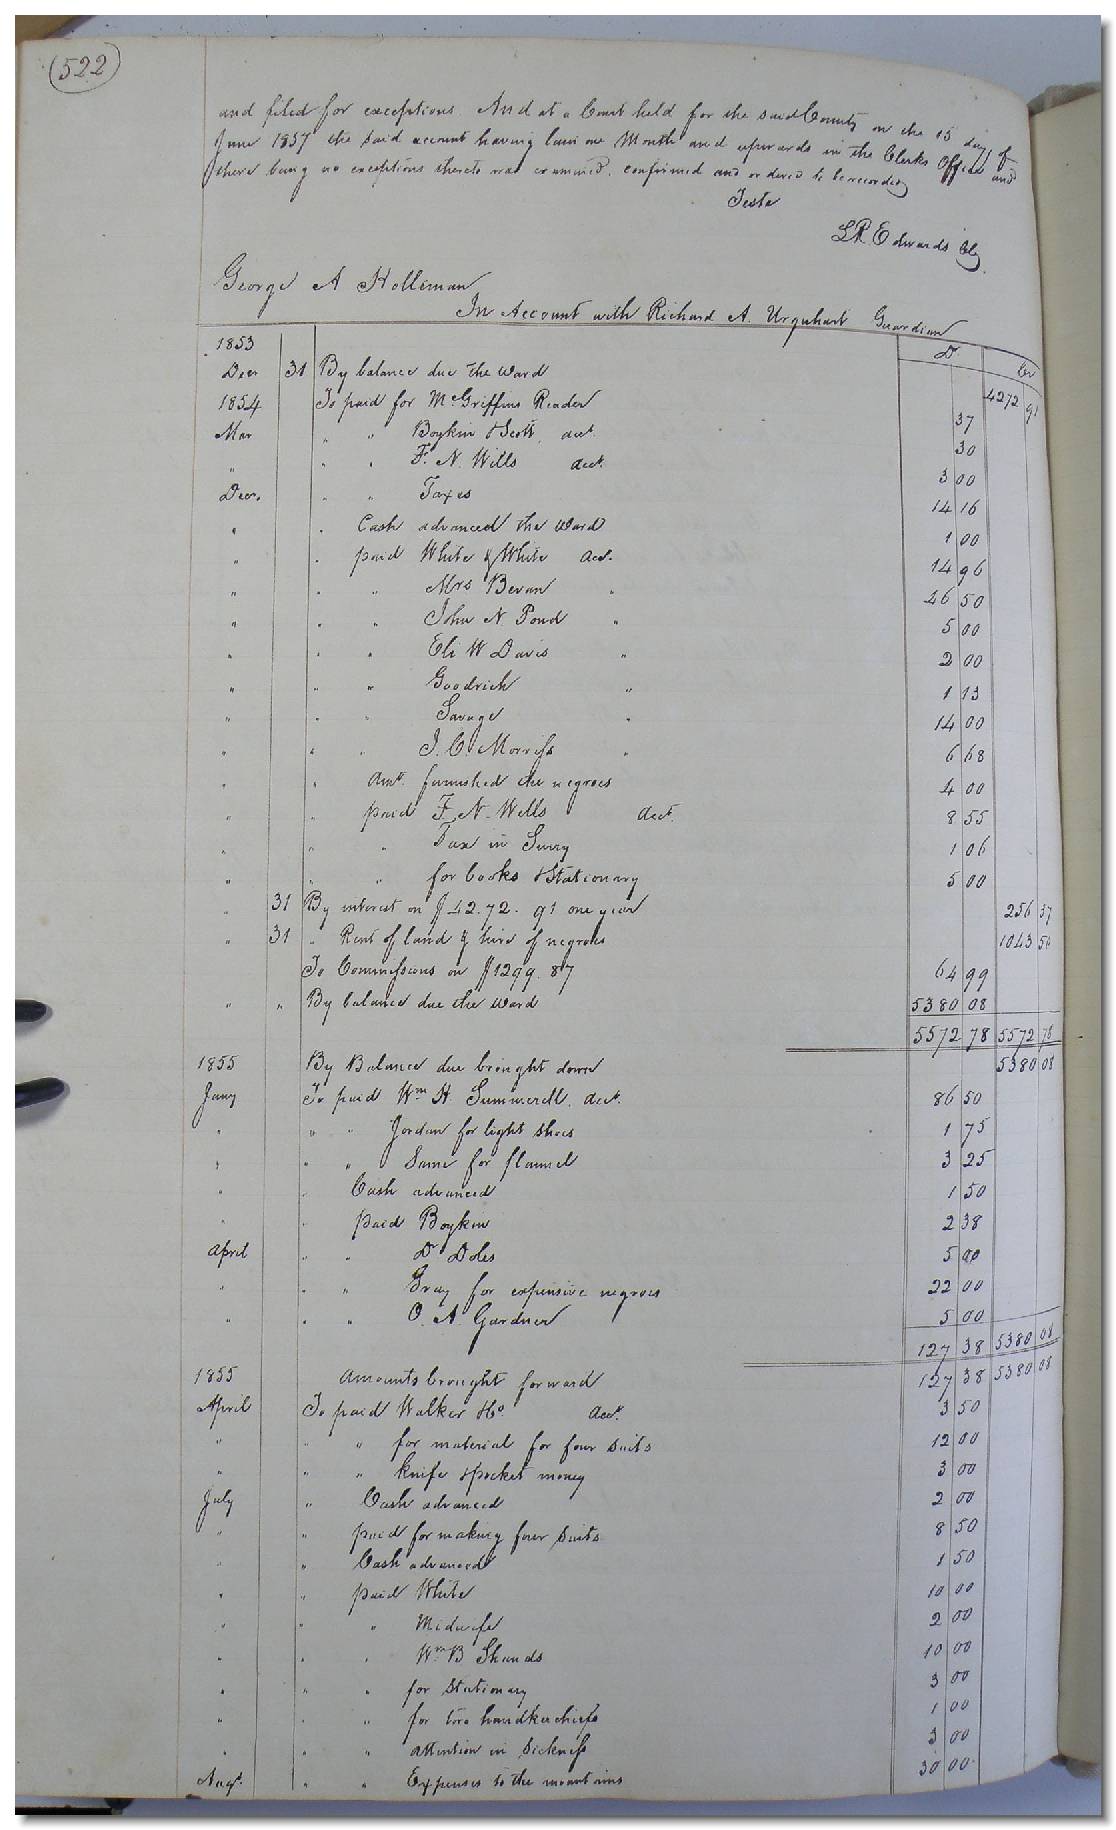 (522)
and filed for exceptions And at a Court held for the said County on the 15 day of
June 1857 the said account having lain one Month and upwards in the Clerks Office and
there being no exceptions thereto was examined, confirmed and ordered to be recorded
Teste
L.R. Edwards Clk
George A Holleman
In Account with Richard A. Urquhart Guardian
1853 Dr Cr
Decr 31 By balance due the Ward 4272 91
1854 To paid for McGriffins Reader 37
Mar " " Boykin & Scott, acct. 30
" " " F. N. Wills acct. 3 00
Decr. " " Taxes 14 16
" " Cash advanced the Ward 1 00
" " paid White & White Acct. 14 96
" " " Mrs Bevan " 46 50
" " " John N. Pond " 5 00
" " " Eli W Davis " 2 00
" " " Goodrich " 1 13
" " " Savage " 14 00
" " " J. C. Morriss " 6 68
" " Amt. furnished the negroes 4 00
" " paid F. N. Wells Acct. 8 55
" " " Tax in Surry 1 06
" " " for books & Stationary 5 00
" 31 By interest on $42.72. 91 one year 256 37
" 31 " Rent of land & hire of negroes 1043 50
To Commissions on $1299.87 64 99
" " By balance due the Ward 5380 08
5572 78 5572 78
1855 By Balance due brought down 5380 08
Jany To paid Wm H. Summerell. acct. 86 50
" " " Jordan for light shoes 1 75
" " " Same for flannel 3 25
" " Cash advanced 1 50
" " paid Boykin 2 38
April " " Dr Doles 5 00
" " " Gray for expensive negroes 22 00
" " " O. A. Gardner 5 00
127 38 5380 08
1855 Amounts brought forward 127 38 5380 08
April To paid Walker & Co. Acct. 3 50
" " " for material for four suits 12 00
" " " knife & pocket money 3 00
July " Cash advanced 2 00
" " paid for making four Suits 8 50
" " Cash advanced 1 50
" " paid White 10 00
" " " Midwife 2 00
" " " Wm B Shands 10 00
" " " for Stationary 3 00
" " " for two handkerchiefs 1 00
" " " attention in Sickness 3 00
Augt. " " Expenses to the mountains 30 00